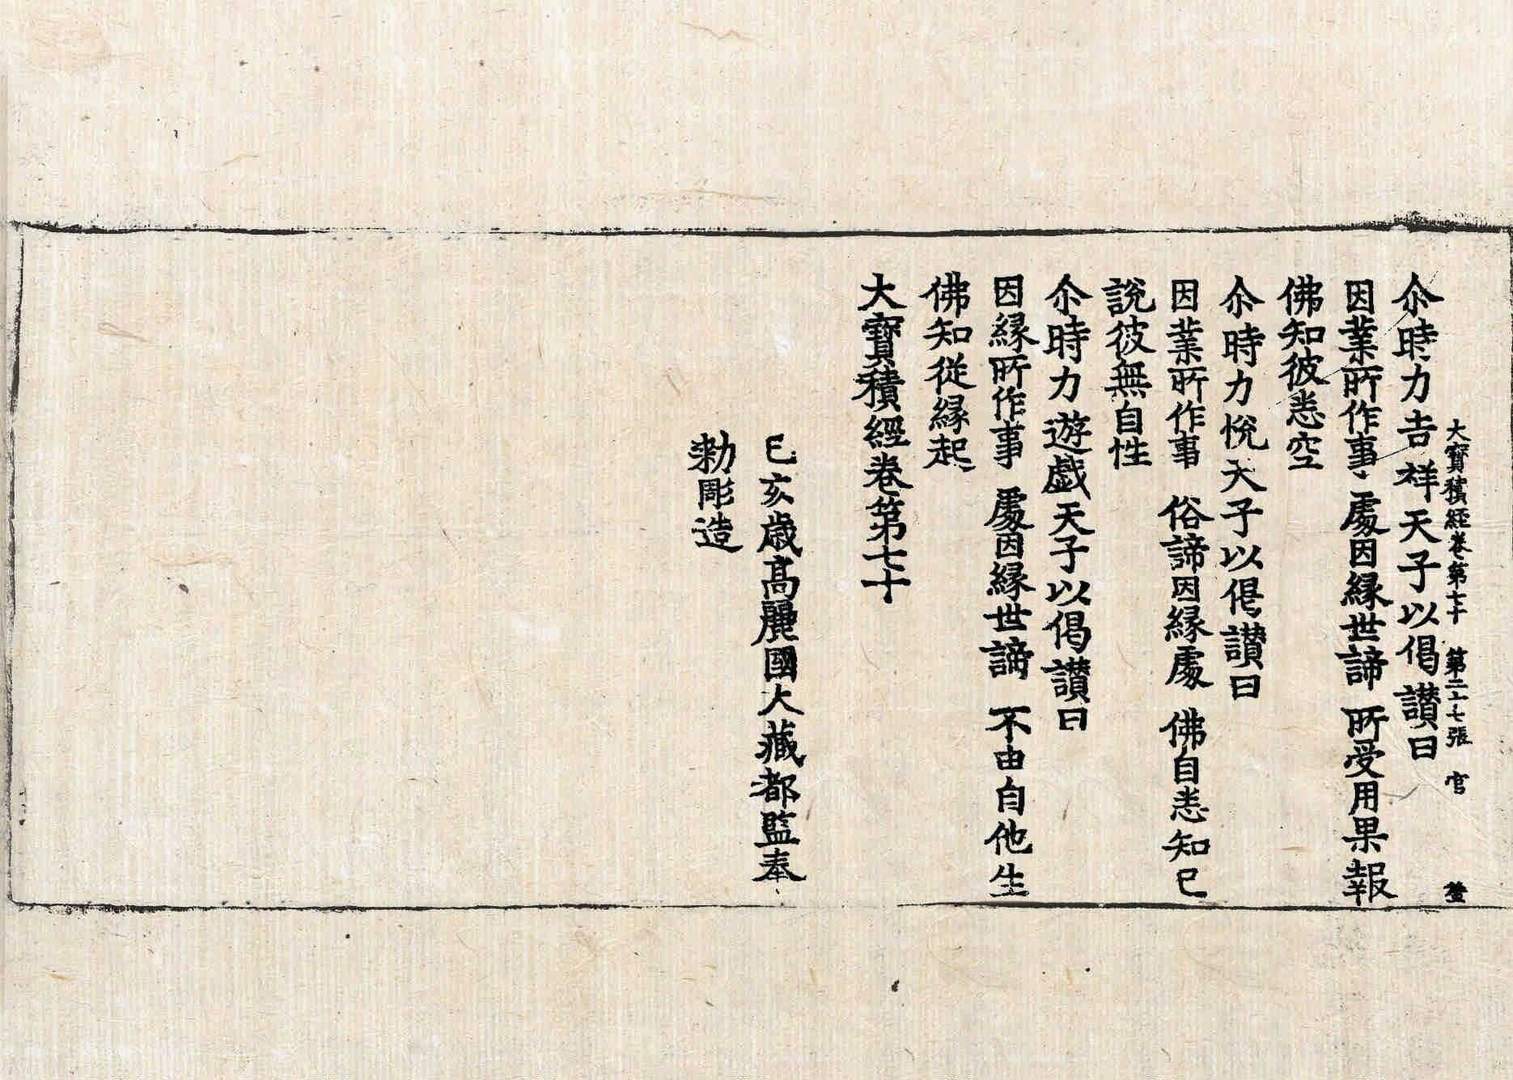 大寶積經卷第七十 第二十七張 官
尒時力吉祥天子以偈讃曰
因業所作事 處因緣世諦 所受用果報
佛知彼悉空
尒時力悅天子以偈讃曰
因業所作事 俗諦因緣處 佛自悉知已
說彼無自性
尒時力遊戲天子以偈讃曰
因緣所作事 處因緣世諦 不由自他生
佛知從緣起
大寶積經卷第七十
己亥歲高麗國大藏都監奉
勅彫造